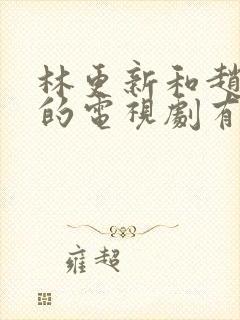 林更新和趙
的電視劇有
雍超